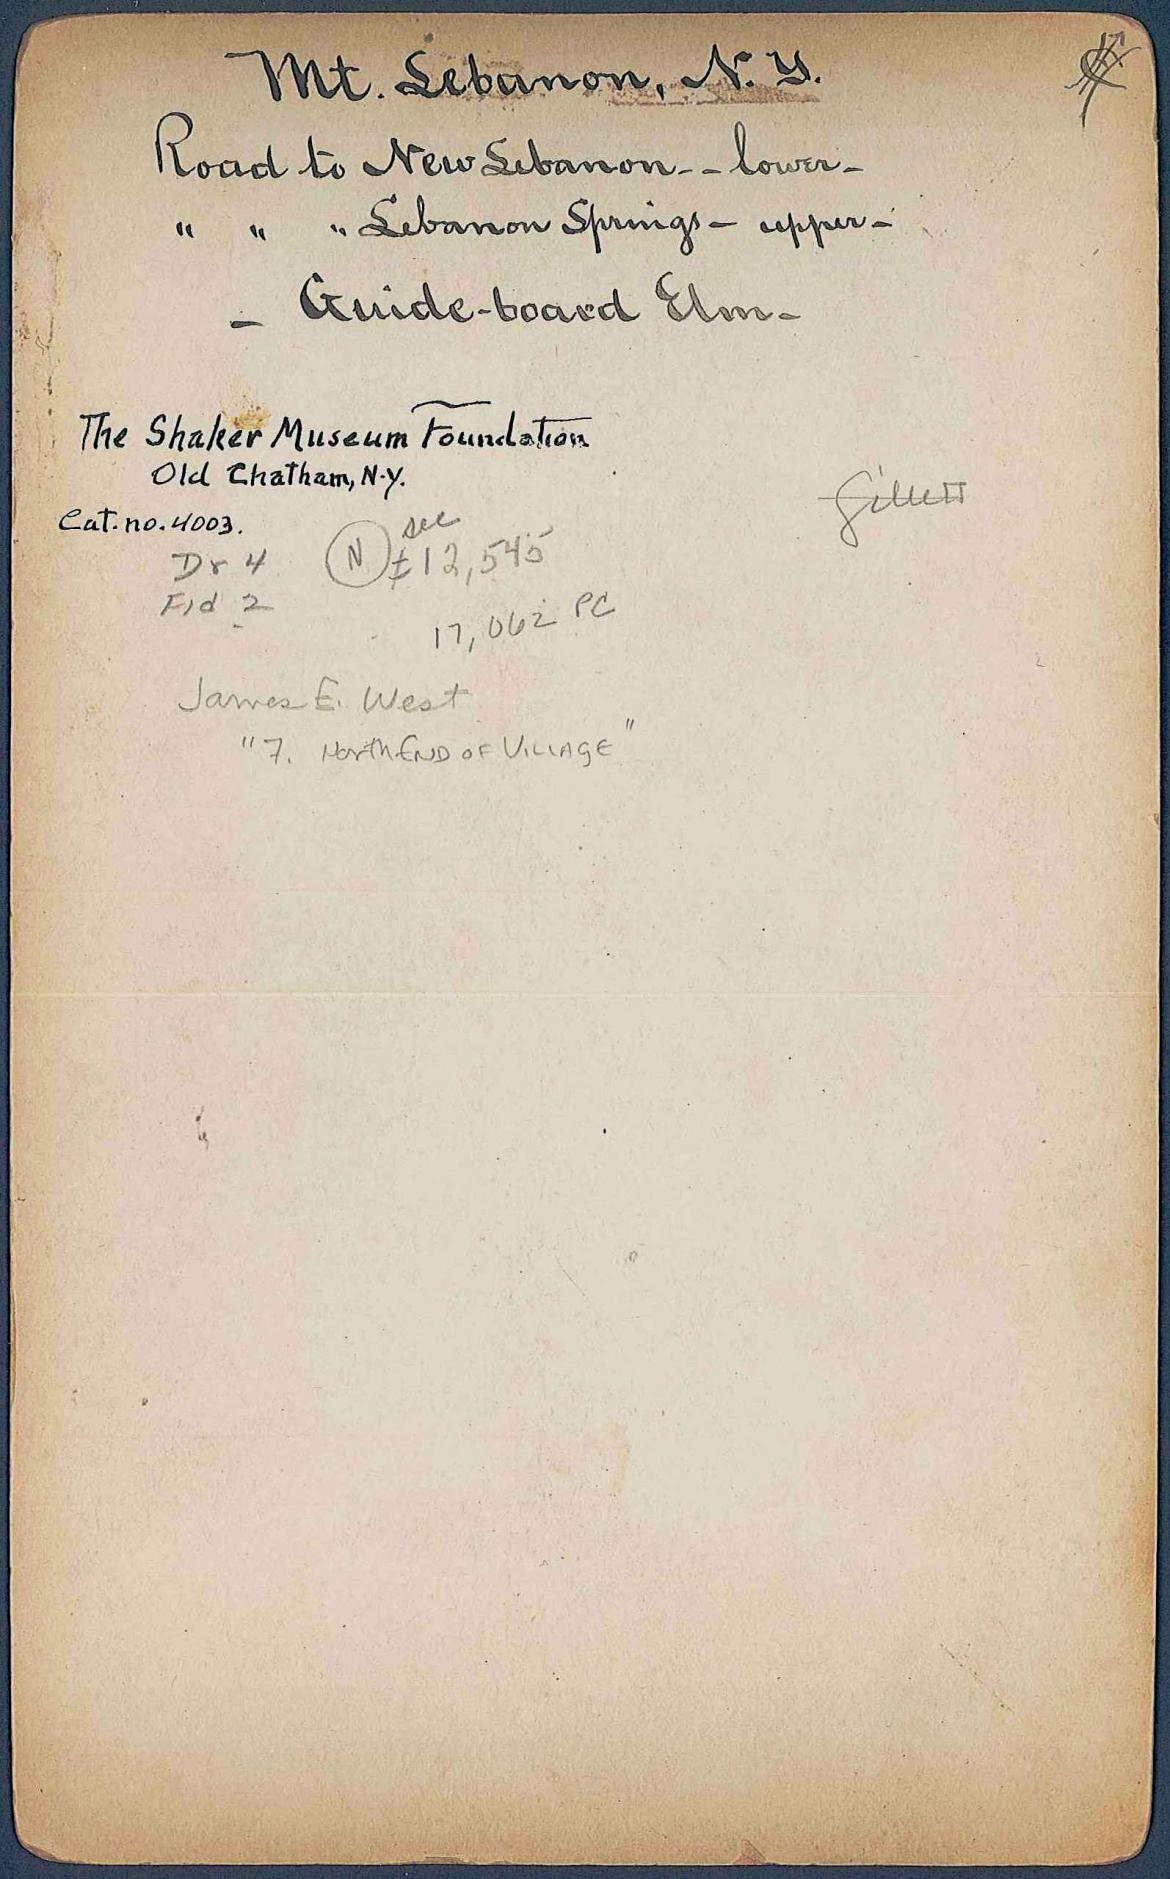 Mt. Lebanon, N. Y.
Road to New Lebanon - - lower -
" " " Lebanon Springs - upper -
- Guide-board Elm -
The Shaker Museum Foundation
Old Chatham, N.Y.
Gillett
Cat. no. 4003.
see
Dr 4 N 12,545
Fld 2
17,062 PC
James E. West
"7. North End of Village"